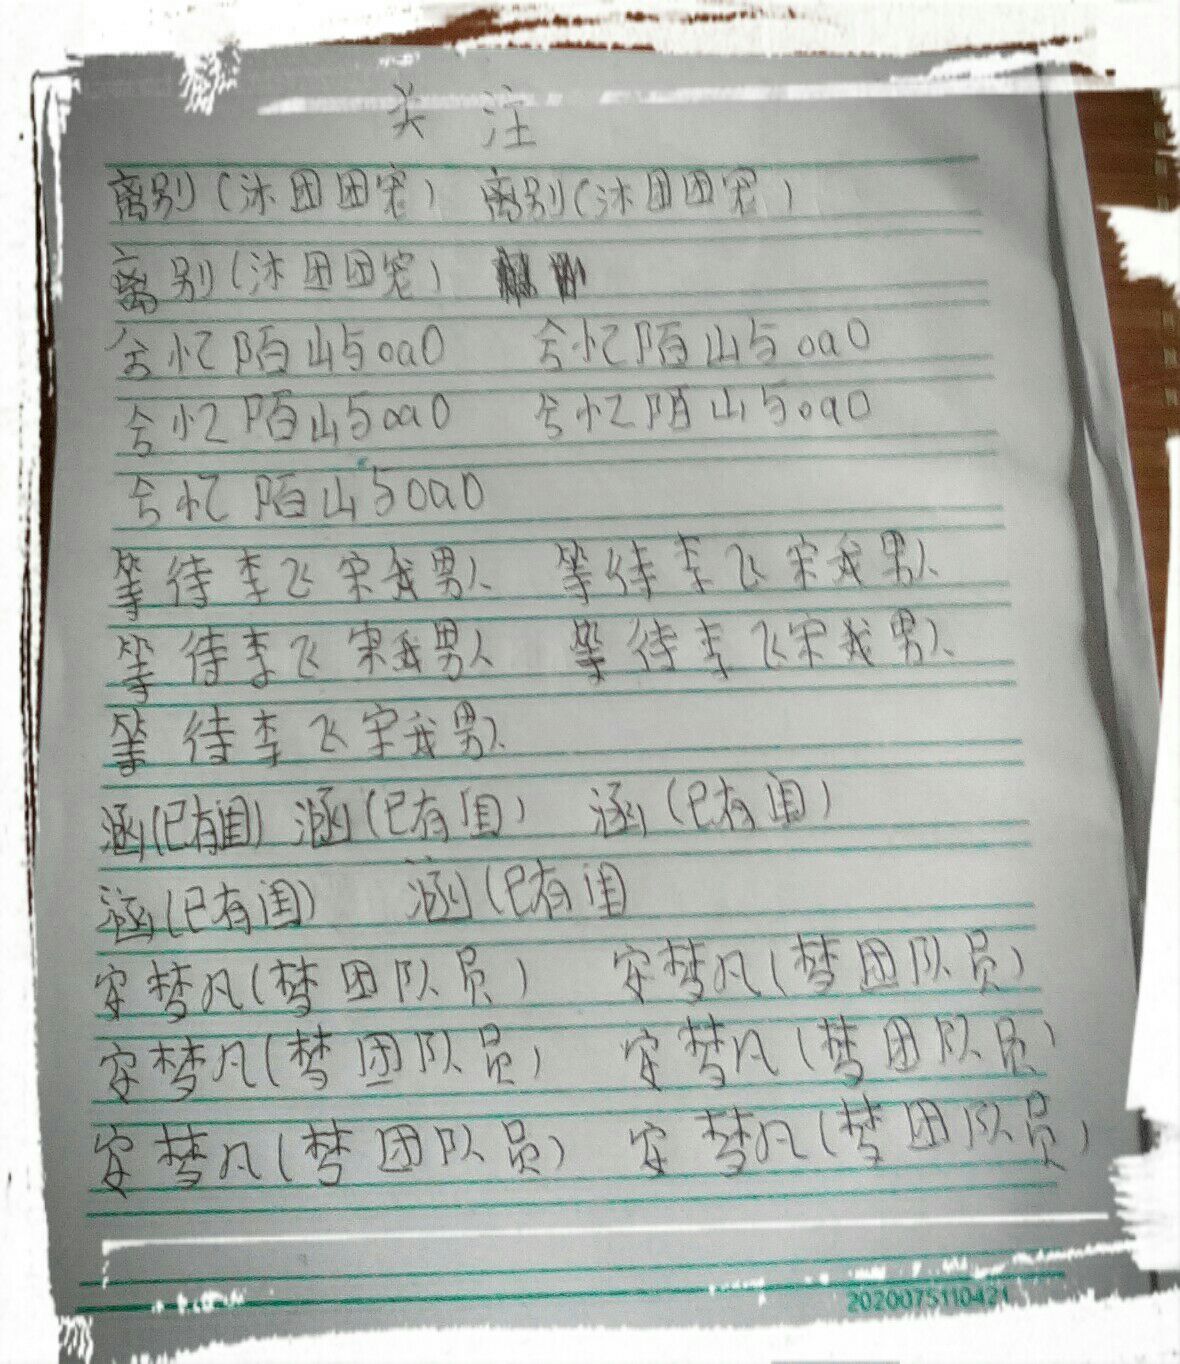 关注
离别(沐团团宠) 离别(沐团团宠)
离别(沐团团宠)
兮忆陌山与oa0 兮忆陌山与oa0
兮忆陌山与oa0 兮忆陌山与oa0
兮忆陌山与oa0
等待李飞宋我男人 等待李飞宋我男人
等待李飞宋我男人 等待李飞宋我男人
等待李飞宋我男人
涵(已有闺) 涵(已有闺) 涵(已有闺)
涵(已有闺) 涵(已有闺
安梦凡(梦团队员) 安梦凡(梦团队员)
安梦凡(梦团队员) 安梦凡(梦团队员)
安梦凡(梦团队员) 安梦凡(梦团队员)
2020075110421